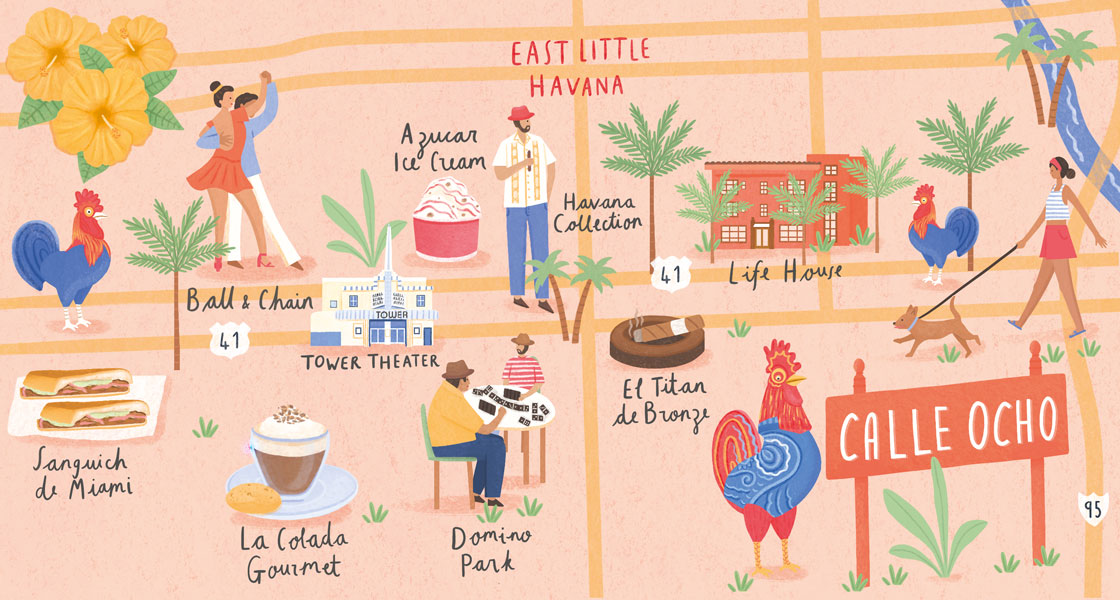 EAST LITTLE
HAVANA
Azucar
Ice Cream
Havana
Collection
41
Life House
Ball & Chain
41
TOWER
TOWER THEATER
El Titan
de Bronze
CALLE OCHO
Sanguich
de Miami
95
La Colada
Gourmet
Domino
Park